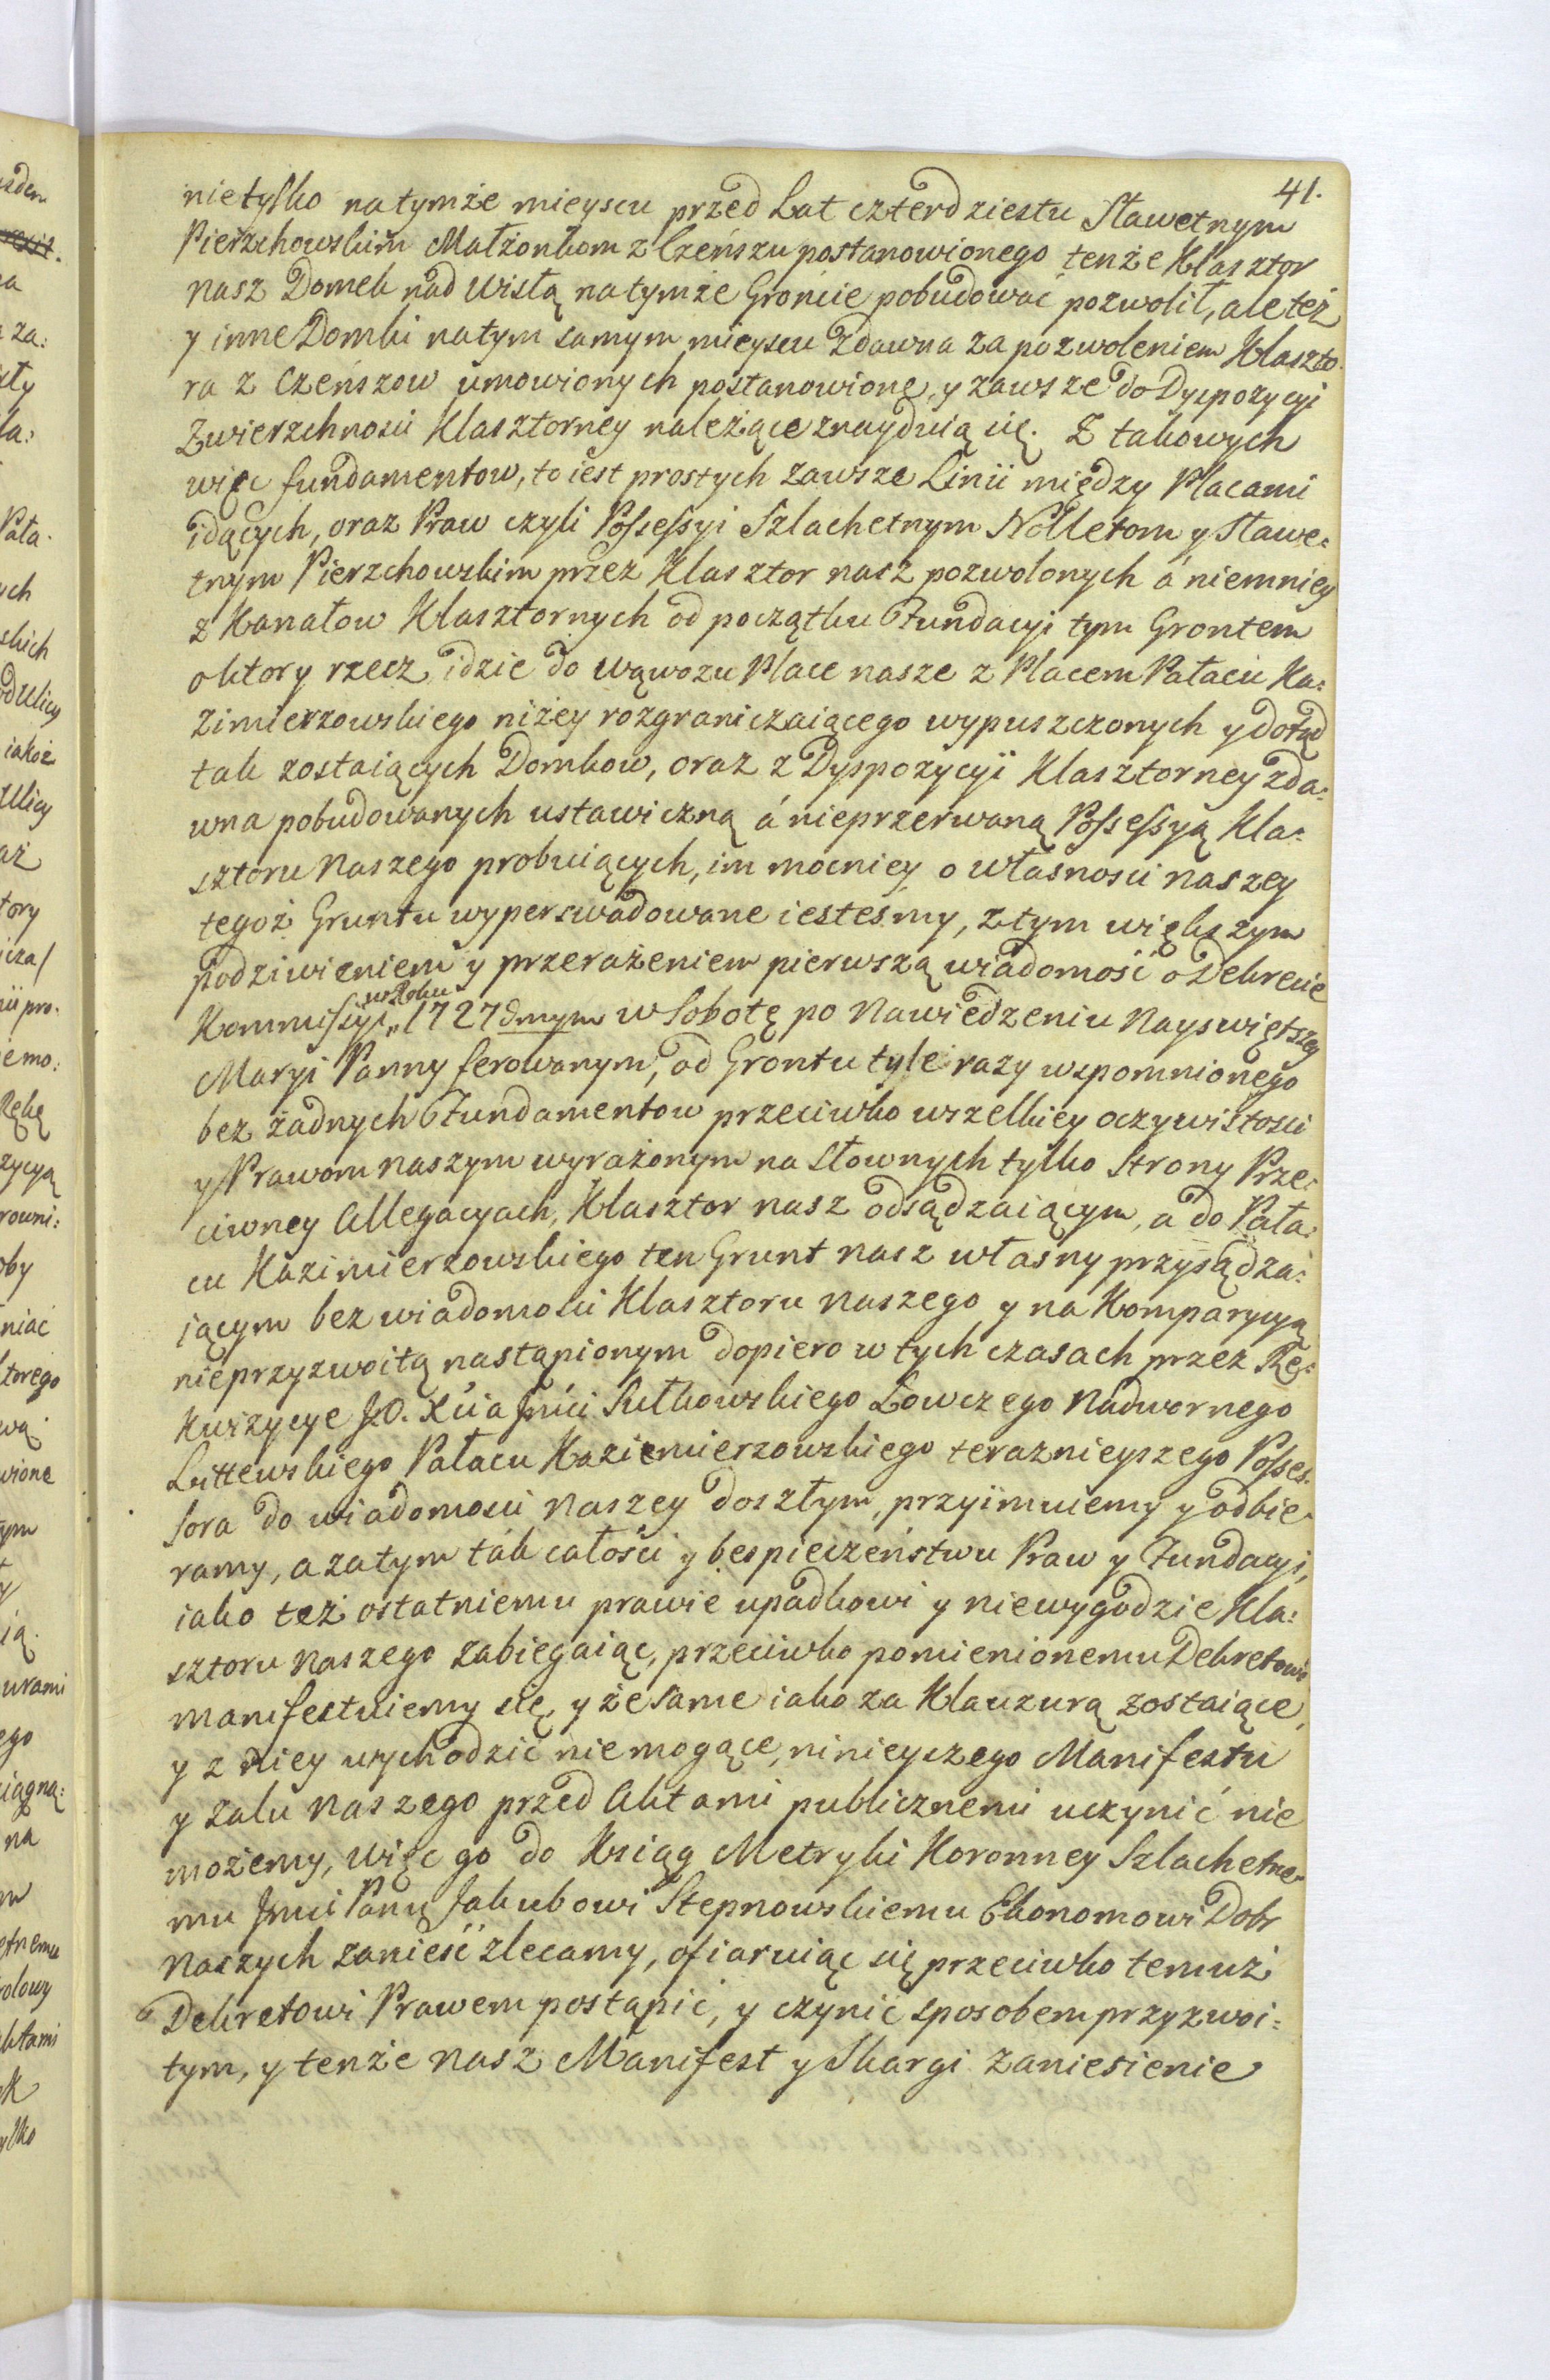 41.
nietylko natymże mieyscu przed Lat czterdziestu Sławetnym
Pierzchowskim Małżonkom z Czeńszu postanowionego tenże Klasztor
nasz Domek nad Wisłą natymże Gróncie pobudować pozwolił, ale też
y inne Domki natym samym mieyscu zdawna za pozwoleniem Klaszto-
ra z Czeńszow umowionych postanowione, y zawsze do Dyspozycyi
Zwierzchnosci Klasztorney należące znayduią się. Z takowych
więc fundamentow, to iest prostych zawsze Linii między Placami
idących, oraz Praw czyli Possessyi Szlachetnym Nolletom y Sławe=
tnym Pierzchowskim przez Klasztor nasz pozwolonych á niemniey
z Kanałow Klasztornych od początku Fundacyi tym Grontem
o ktory rzecz idzie do wąwozu Place nasze z Placem Pałacu Ka=
zimierzowskiego niżey rozgraniczaiącego wypuszczonych y dotąd
tak zostaiących Domkow, oraz z Dyspozycyi Klasztorney zda=
wna pobudowanych ustawiczną á nieprzerwaną Possessyą Kla=
sztoru Naszego probuiących, im mocniey o własnosci naszey
tegoż Gruntu wyperswadowane iesteśmy, z tym większym
podziwieniem y przerażeniem pierwszą wiadomość o Dekrecie
Kommissyi w Roku 1727dmym w Sobotę po Nawiedzeniu Nayswiętszey
Maryi Panny ferowanym, od Grontu tyle razy wspomnionego
bez żadnych Fundamentow przeciwko wszelkiey oczywistosci
y Prawom naszym wyrażonym na Słownych tylko Strony Prze=
ciwney Allegacyach, Klasztor nasz odsądzaiącym, a do Pała=
cu Kazimierzowskiego ten Grunt nasz własny przysądza=
iącym bez wiadomosci Klasztoru Naszego y na Komparycyą
nieprzyzwoitą nastąpionym dopiero w tych czasach przez Rę=
kwizycye JO. Xcia Jmci Sułkowskiego Łowczego Nadwornego
Littewskiego Pałacu Kaziemierzowskiego teraznieyszego Posses=
sora do wiadomosci Naszey doszłym, przyimuiemy y odbie-
ramy, a zatym ták całości y bespieczeństwu Praw y Fundacyi,
iako też ostatniemu prawie upadkowi y niewygodzie Kla=
sztoru Naszego zabiegaiąc, przeciwko pomienionemu Dekretowi
manifestuiemy się, y że same iako za Klauzurą zostaiące,
y z Niey wychodzić niemogące, ninieyszego Manifestu
y żalu Naszego przed Aktami publicznemi uczynić nie
możemy, więc go do Ksiąg Metryki Koronney Szlachetne-
mu Jmci Panu Jakubowi Stepnowskiemu Ekonomowi Dobr
Naszych zanieść zlecamy, ofiaruiąc się przeciwko temuż
Dekretowi Prawem postąpić, y czynić sposobem przyzwoi=
tym, y tenże nasz Manifest y Skargi zaniesienie